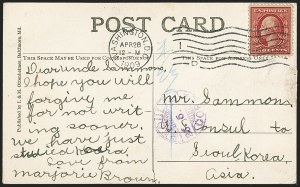 POST CARD
WASHINGTON, D.C.
APR 28
12-M
1909
THIS SPACE MAY BE USED FOR CORRESPONDENCE
THIS SPACE FOR ADDRESS ONLY
Published by I. & M. Ottenheimer, Baltimore, Md.
Dear uncle Sammons,
I hope you will
forgive me
for not writ
ing sooner,
we have just
Love from
marjorie Brown.
Mr. Sammons,
U. Consul to
Seoul Korea,
Asia.